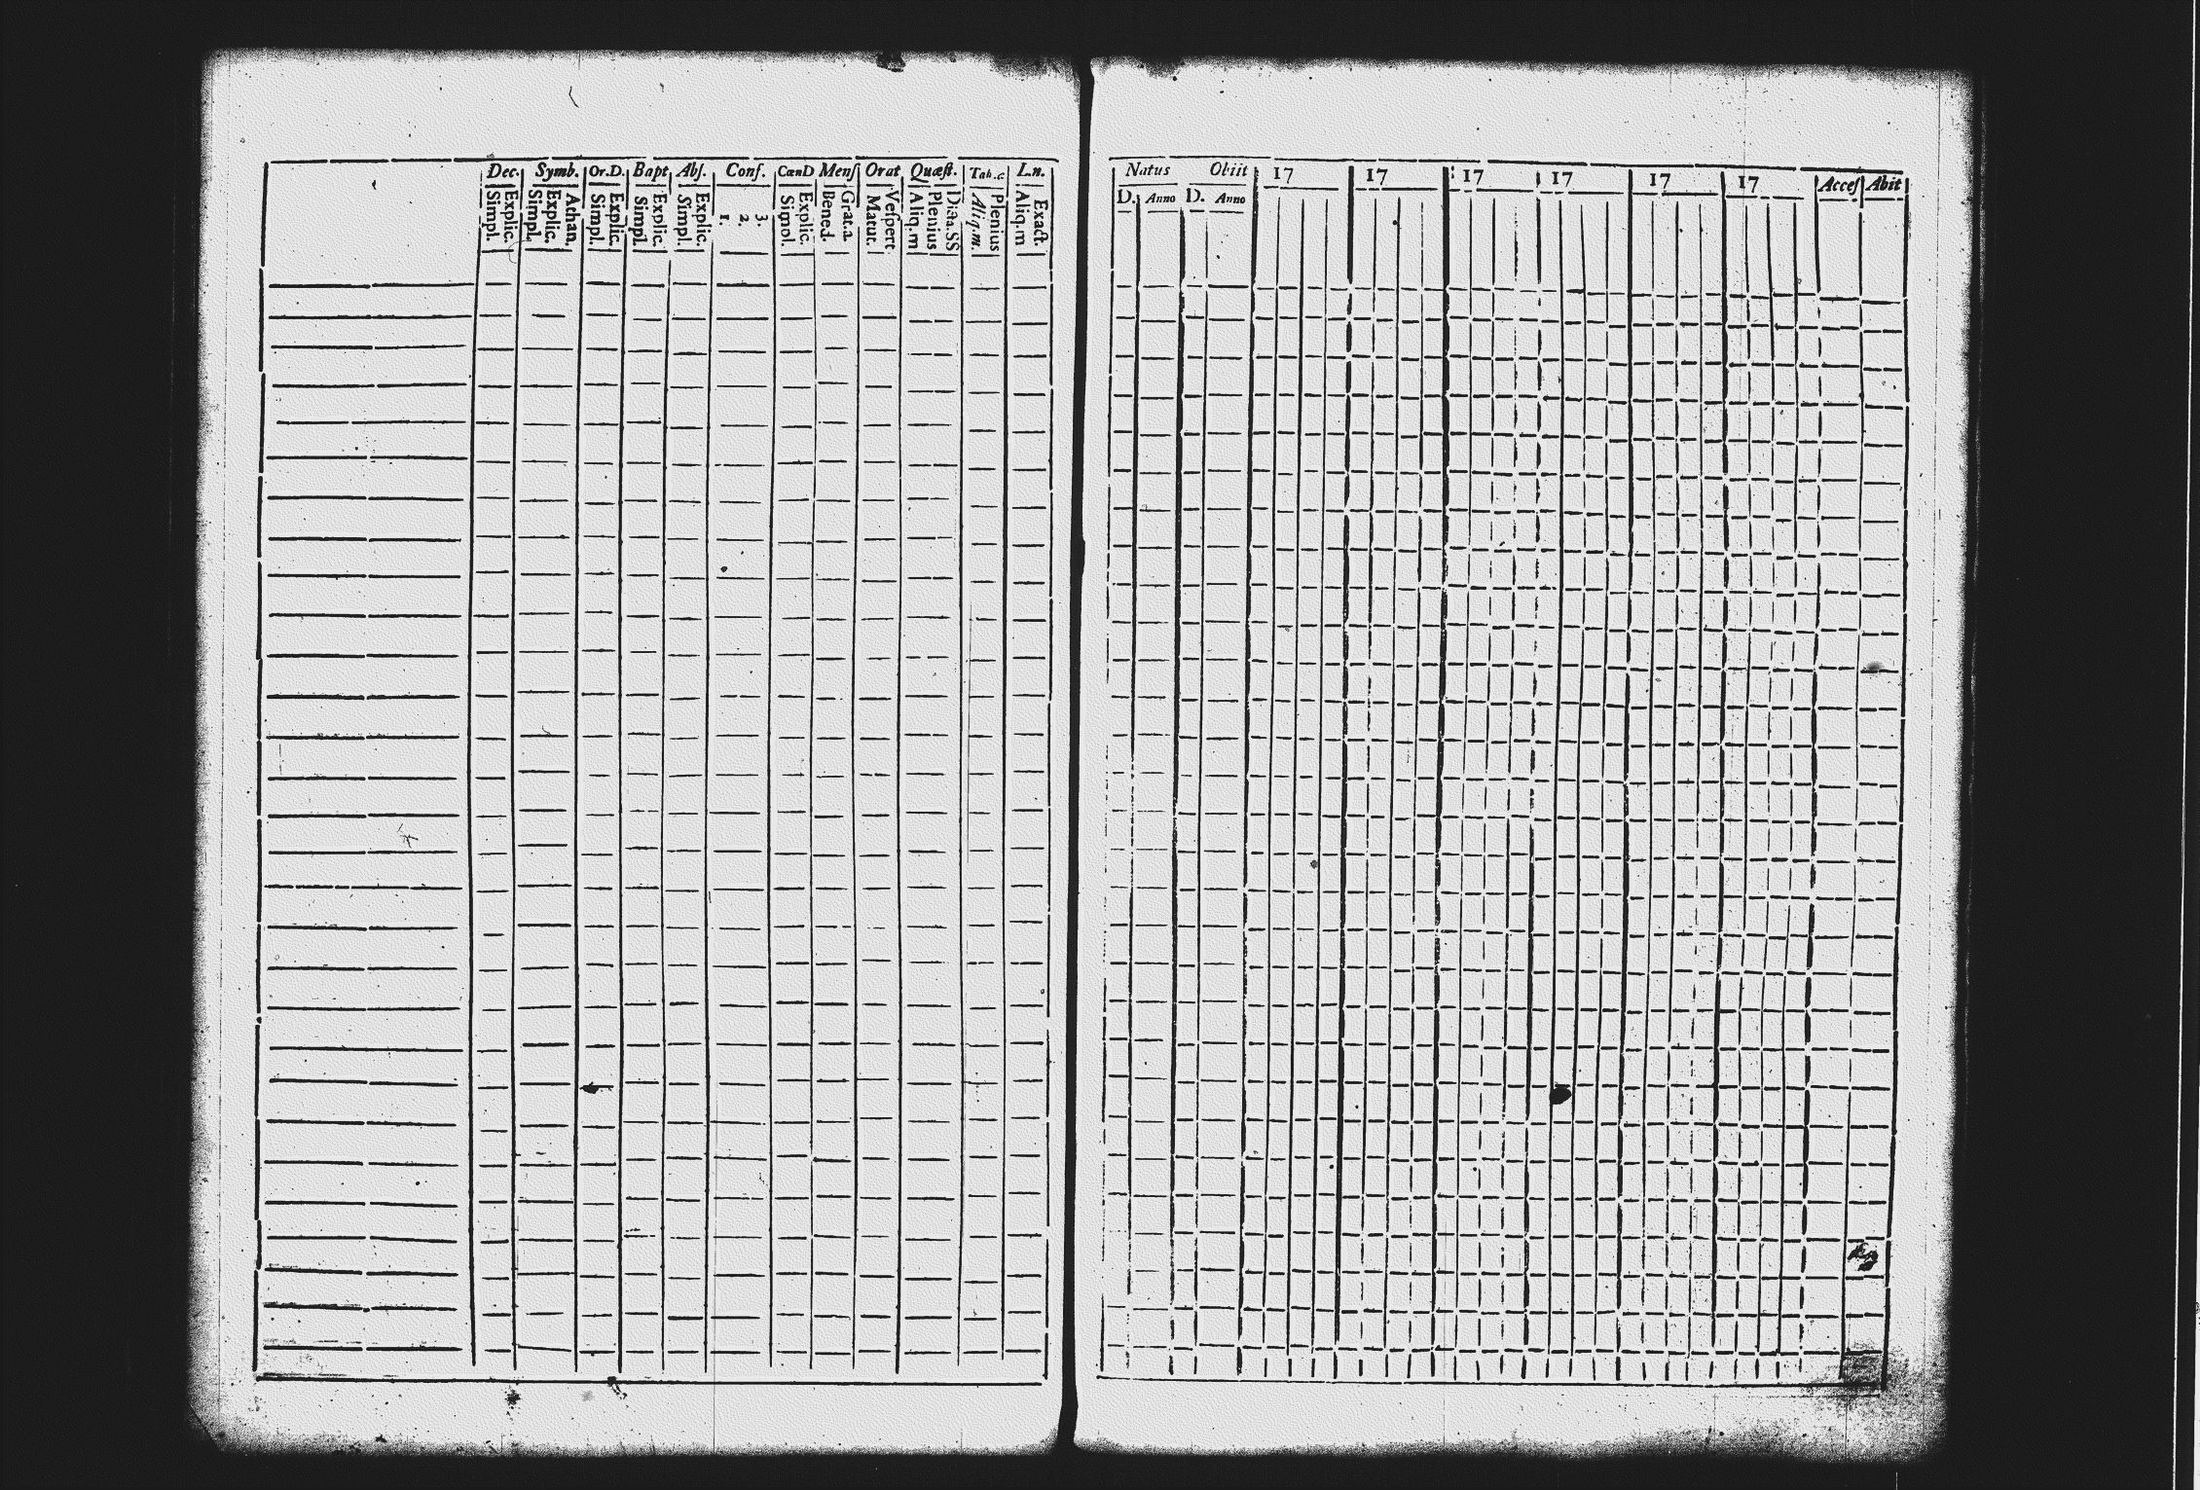 Dec. Symb. Or.D. Bapt Abſ. Conf. CœnD Menſ Orat Quæſt. Tab.c. L.n.
Explic. Simpl. Athan. Explic. Simpl. Explic. Simpl. Explic. Simpl. Explic. Simpl. 3. 2. 1. Explic. Simpl. Grat.a. Bened. Veſpert Matut. Dicta.SS Plenius Aliq.m Plenius Aliq.m. Exact. Aliq.m
Natus Obiit 17 17 17 17 17 17 Acceſ Abit
D. Anno D. Anno